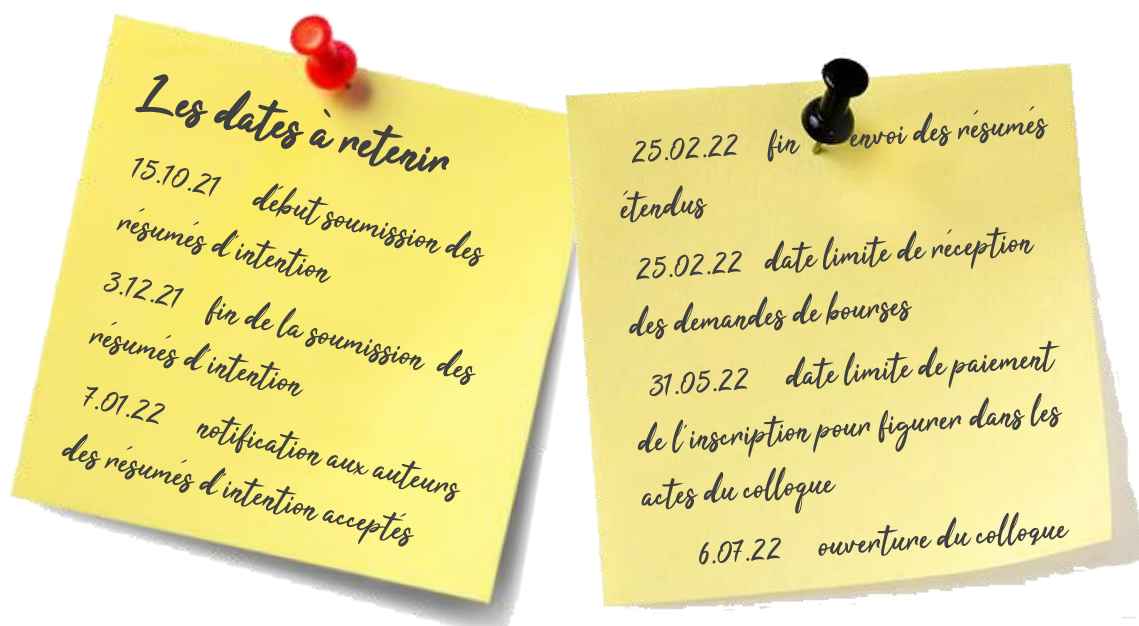 Les dates à retenir
15.10.21 début soumission des
résumés d'intention
3.12.21 fin de la soumission des
résumés d'intention
7.01.22 notification aux auteurs
des résumés d'intention acceptés
25.02.22 fin envoi des résumés
étendus
25.02.22 date limite de réception
des demandes de bourses
31.05.22 date limite de paiement
de l'inscription pour figurer dans les
actes du colloque
6.07.22 ouverture du colloque